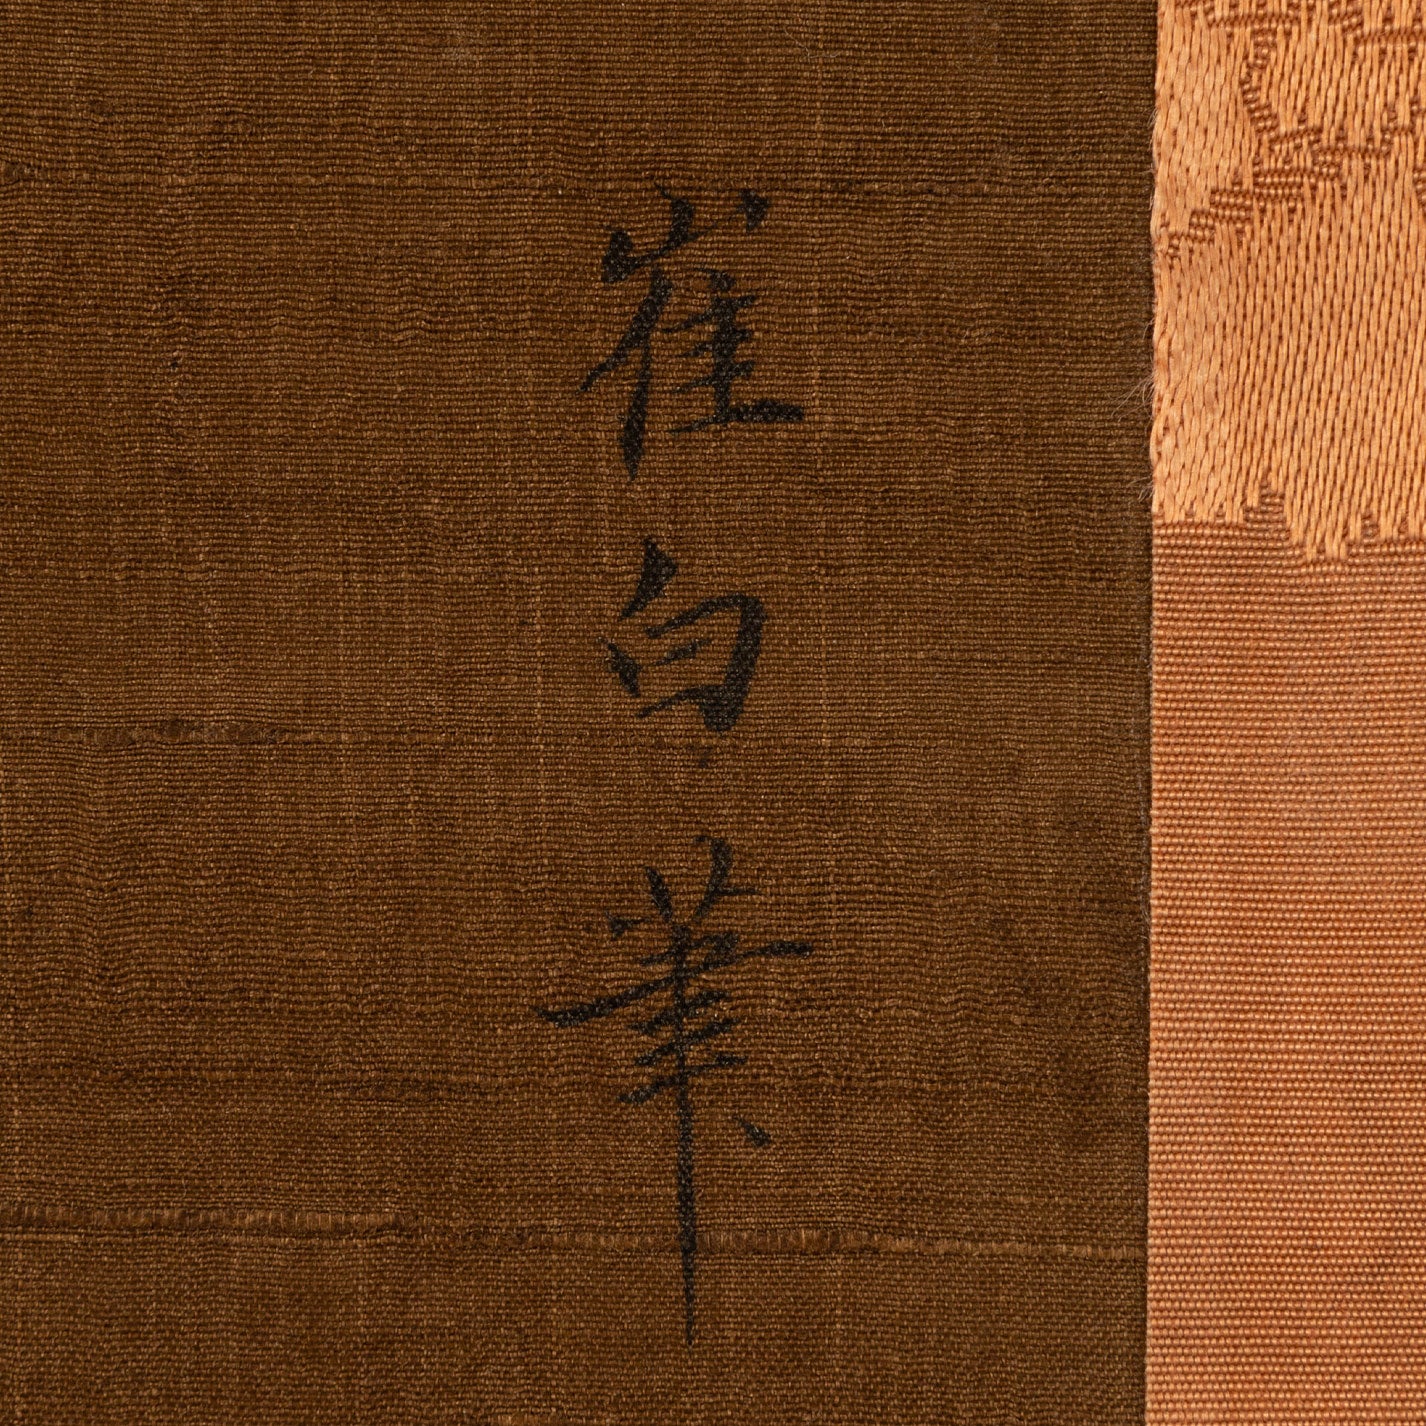 崔白筆